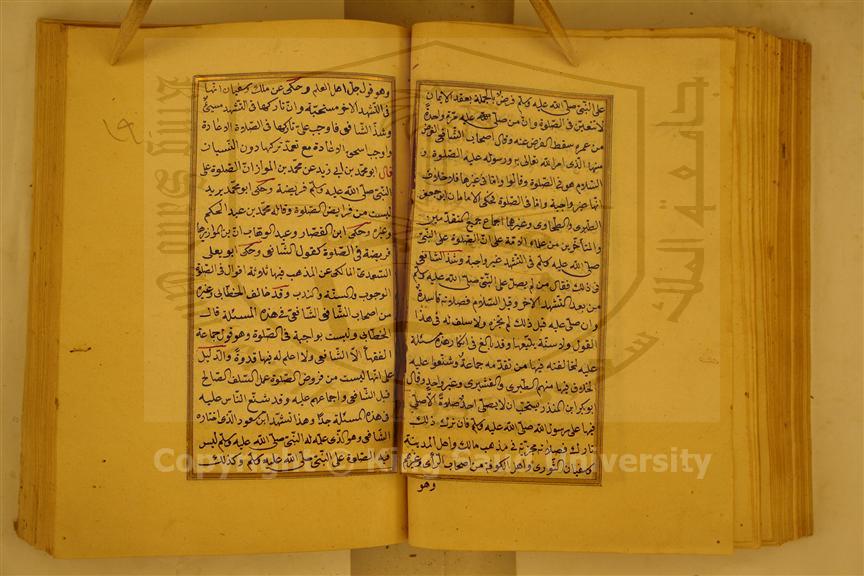 على النبي صلى الله عليه وسلم فرض بالجملة بعقد الايمان
لا تتعين في الصلوة وان من صلى عليه مرة واحدة
من عمره سقط الفرض عنه وقال اصحاب الشافعي الفرض
منها الذي امر الله تعالى به ورسوله عليه الصلوة و
السلام هو في الصلوة وقالوا واما في غيرها فلا خلاف
انها غير واجبة واما في الصلوة فحكى الامامان ابو جعفر
الطبري والطحاوي وغيرهما اجماع جميع المتقدمين
والمتأخرين من علماء الامة على ان الصلوة على النبي
صلى الله عليه وسلم في التشهد غير واجبة وشذ الشافعي
في ذلك فقال من لم يصل على النبي صلى الله عليه وسلم
من بعد التشهد الاخر وقبل السلام فصلاته فاسدة
وان صلى عليه قبل ذلك لم تجزه ولا سلف له في هذا
القول ولا سنة يتبعها وقد بالغ في انكار هذه المسئلة
عليه لمخالفته فيها من تقدمه جماعة وشنعوا عليه
الخلاف فيها منهم الطبري والقشيري وغير واحد وقال
ابو بكر ابن المنذر يستحب ان لا يصلي احد صلوة الا صلى
فيها على رسول الله صلى الله عليه وسلم فان ترك ذلك
تارك فصلاته مجزئة في مذهب مالك واهل المدينة
وسفيان الثوري واهل الكوفة من اصحاب الرأي وغيرهم
وهو
وهو قول جل اهل العلم وحكي عن مالك وسفيان انها
في التشهد الاخر مستحبة وان تاركها في التشهد مسيئ
وشذ الشافعي فاوجب على تاركها في الصلوة الاعادة
واوجب اسحق الاعادة مع تعمد تركها دون النسيان
قال ابو محمد بن ابي زيد عن محمد بن المواز ان الصلوة على
النبي صلى الله عليه وسلم فريضة وحكى ابو محمد يريد
ليست من فرايض الصلوة وقاله محمد بن عبد الحكم
وغيره وحكى ابن القصار وعبد الوهاب ان بن المواز يراها
فريضة في الصلوة كقول الشافعي وحكى ابو يعلى
العبدي المالكي عن المذهب فيها ثلاثة اقوال في الصلوة
الوجوب والسنة والندب وقد خالف الخطابي وغيره
من اصحاب الشافعي الشافعي في هذه المسئلة قال
الخطابي وليست بواجبة في الصلوة وهو قول جماعة
الفقهاء الا الشافعي ولا اعلم له فيها قدوة والدليل
على انها ليست من فروض الصلوة عمل السلف الصالح
قبل الشافعي واجماعهم عليه وقد شنع الناس عليه
في هذه المسئلة جدا وهذا تشهد ابن مسعود الذي اختاره
الشافعي وهو الذي علمه له النبي صلى الله عليه وسلم ليس
فيه الصلوة على النبي صلى الله عليه وسلم وكذلك
Copyright © King Saud University
King Saud University
جامعة الملك سعود